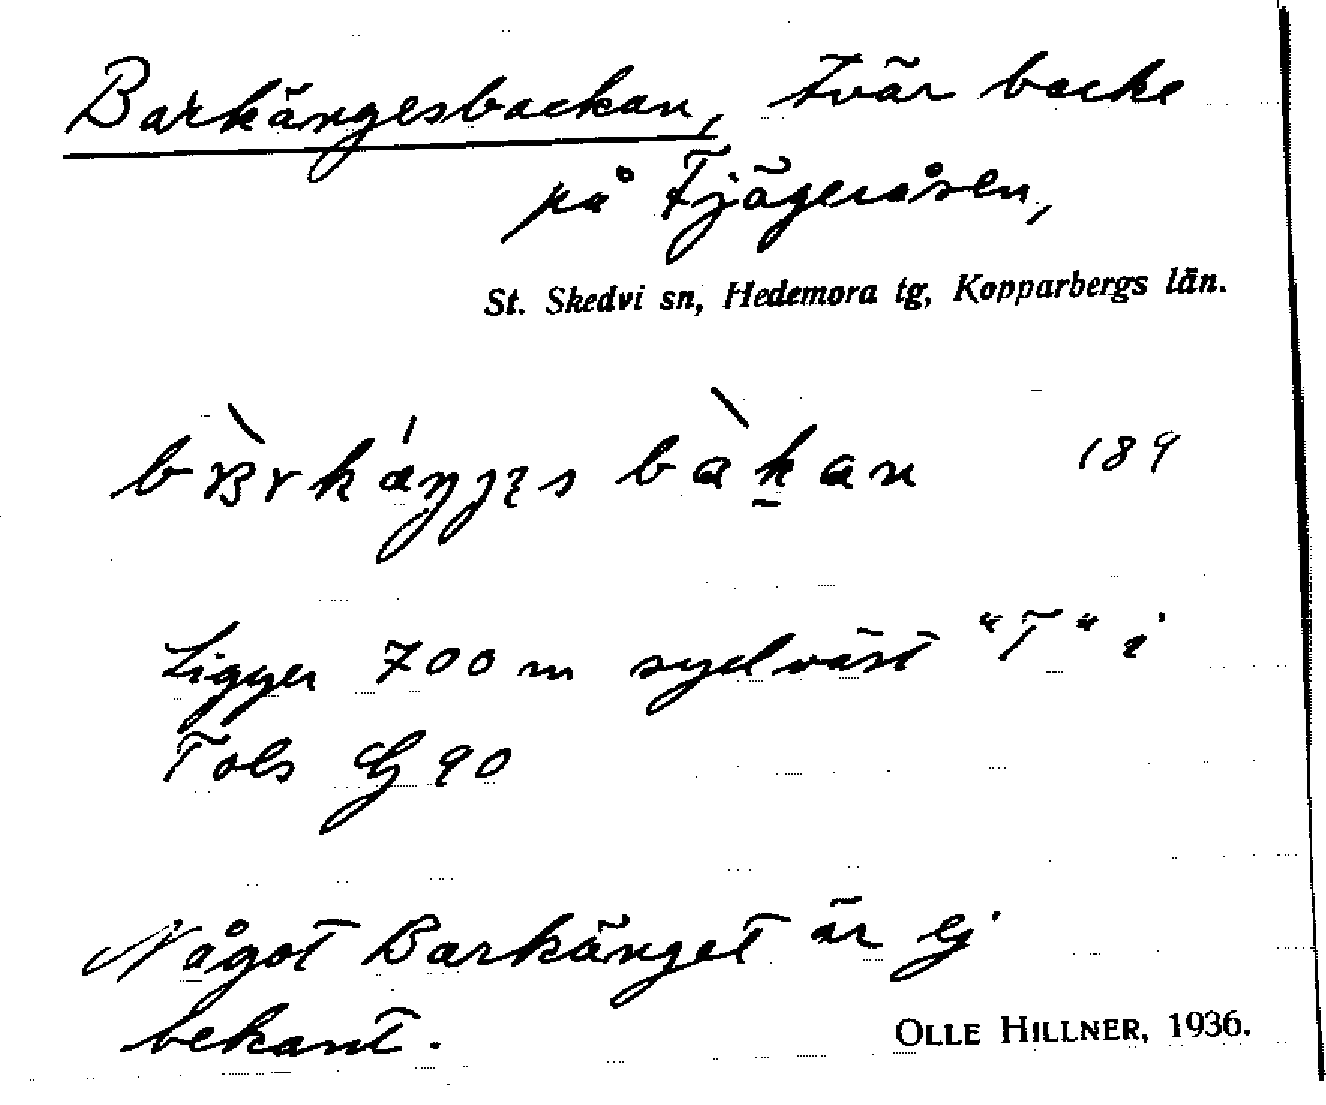 Barkängesbackan, tvär backe
på Tjägeråsen,
St. Skedvi sn, Hedemora tg, Kopparbergs län.
bakan 189
Ligger 700 m sydväst "T" i
Tols G 90
Något Barkänget är ej
bekant.
OLLE HILLNER, 1936.